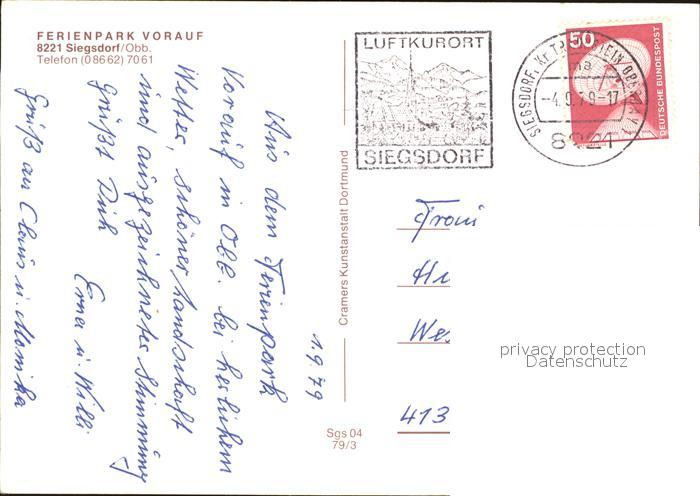 FERIENPARK VORAUF
8221 Siegsdorf/Obb.
Telefon (0 86 62) 70 61
1.9.79
Aus dem Ferienpark
Vorauf in Obb. bei herlichem
Wetter, schöner Landschaft
und ausgezeichneter Stimmung
grüßt Dich
Erna u. Willi
Gruß an Claus u. Monika
Cramers Kunstanstalt Dortmund
Sgs 04
79/3
LUFTKURORT
SIEGSDORF
SIEGSDORF, Kr
-4.9.79-17
8221
50
DEUTSCHE BUNDESPOST
We
413
privacy protection
Datenschutz